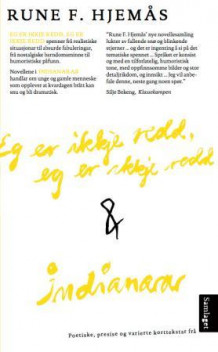 RUNE F. HJEMÅS
EG ER IKKJE REDD, EG ER
IKKJE REDD spenner frå realistiske
situasjonar til absurde fabuleringar,
frå nostalgiske barndomsminne til
humoristiske påfunn.
Novellene i INDIANARAR
handlar om unge og gamle menneske
som opplever at kvardagen brått kan
snu og bli dramatisk.
"Rune F. Hjemås' nye novellesamling
lukter av fallende rose og blinkande
stjerner ... og det er ingenting å si på det
tematiske spennet ... Språket er konsist
og med en tilforlatelig, humoristisk
tone, med oppfinnsomme bilder og stor
detaljrikdom, og innsikt ... Jeg vil anbe-
falde denne, neste gang noen spør."
Silje Bekeng, Klassekampen
Eg er ikkje redd,
eg er ikkje redd
&
indianarar
Samlaget
Poetiske, presise og varierte korttekstar frå